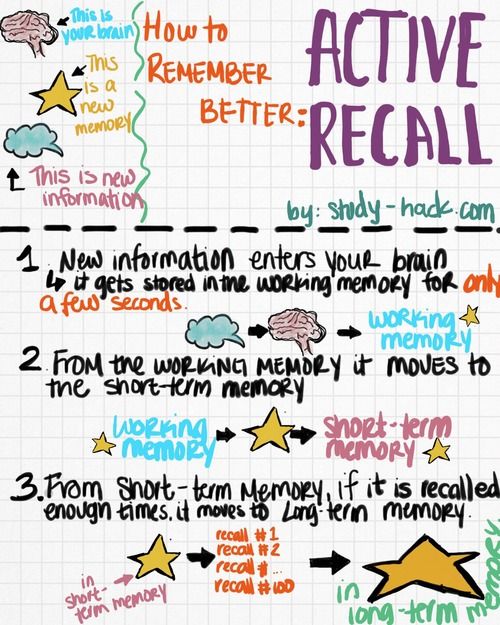 This is
your brain
This
is a
new
memory
This is new
information
How to
Remember
Better:
ACTIVE
RECALL
by: study-hack.com
1. New information enters your brain
it gets stored in the working memory for only
a few seconds.
working
memory
2. From the working memory it moves to
the short-term memory
working
memory
short-term
memory
3. From short-term memory, if it is recalled
enough times, it moves to long-term memory.
in
short-
term memory
recall #1
recall #2
recall # ...
recall #100
in
long-term memory